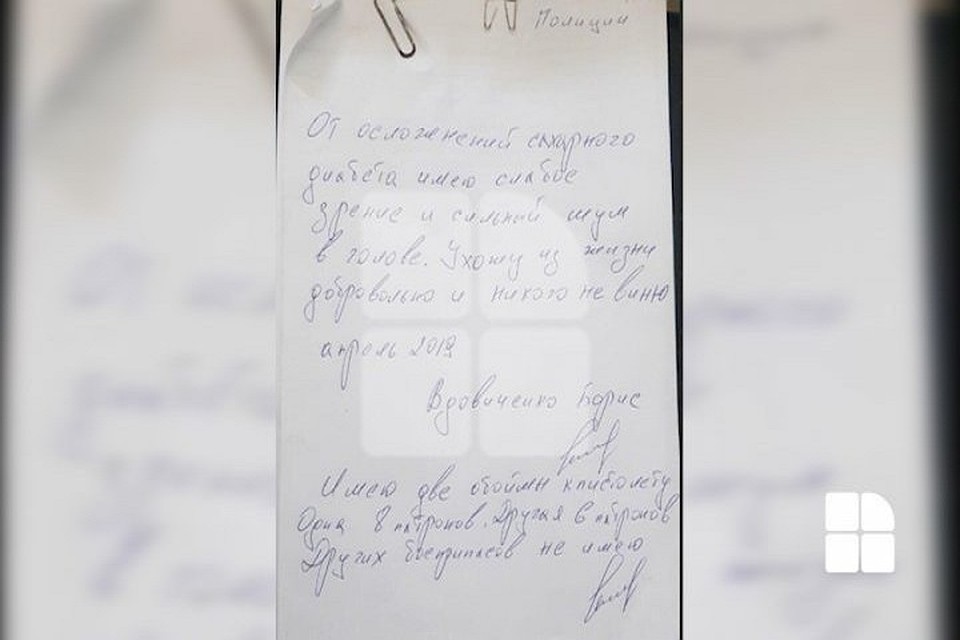 Полиции
От осложнений сахарного
диабета имею слабое
зрение и сильный шум
в голове. Ухожу из жизни
добровольно и никого не виню
апрель 2019
Вдовиченко Борис
Имею две обоймы к пистолету
Одна 8 патронов. Другая 6 патронов
Других боеприпасов не имею